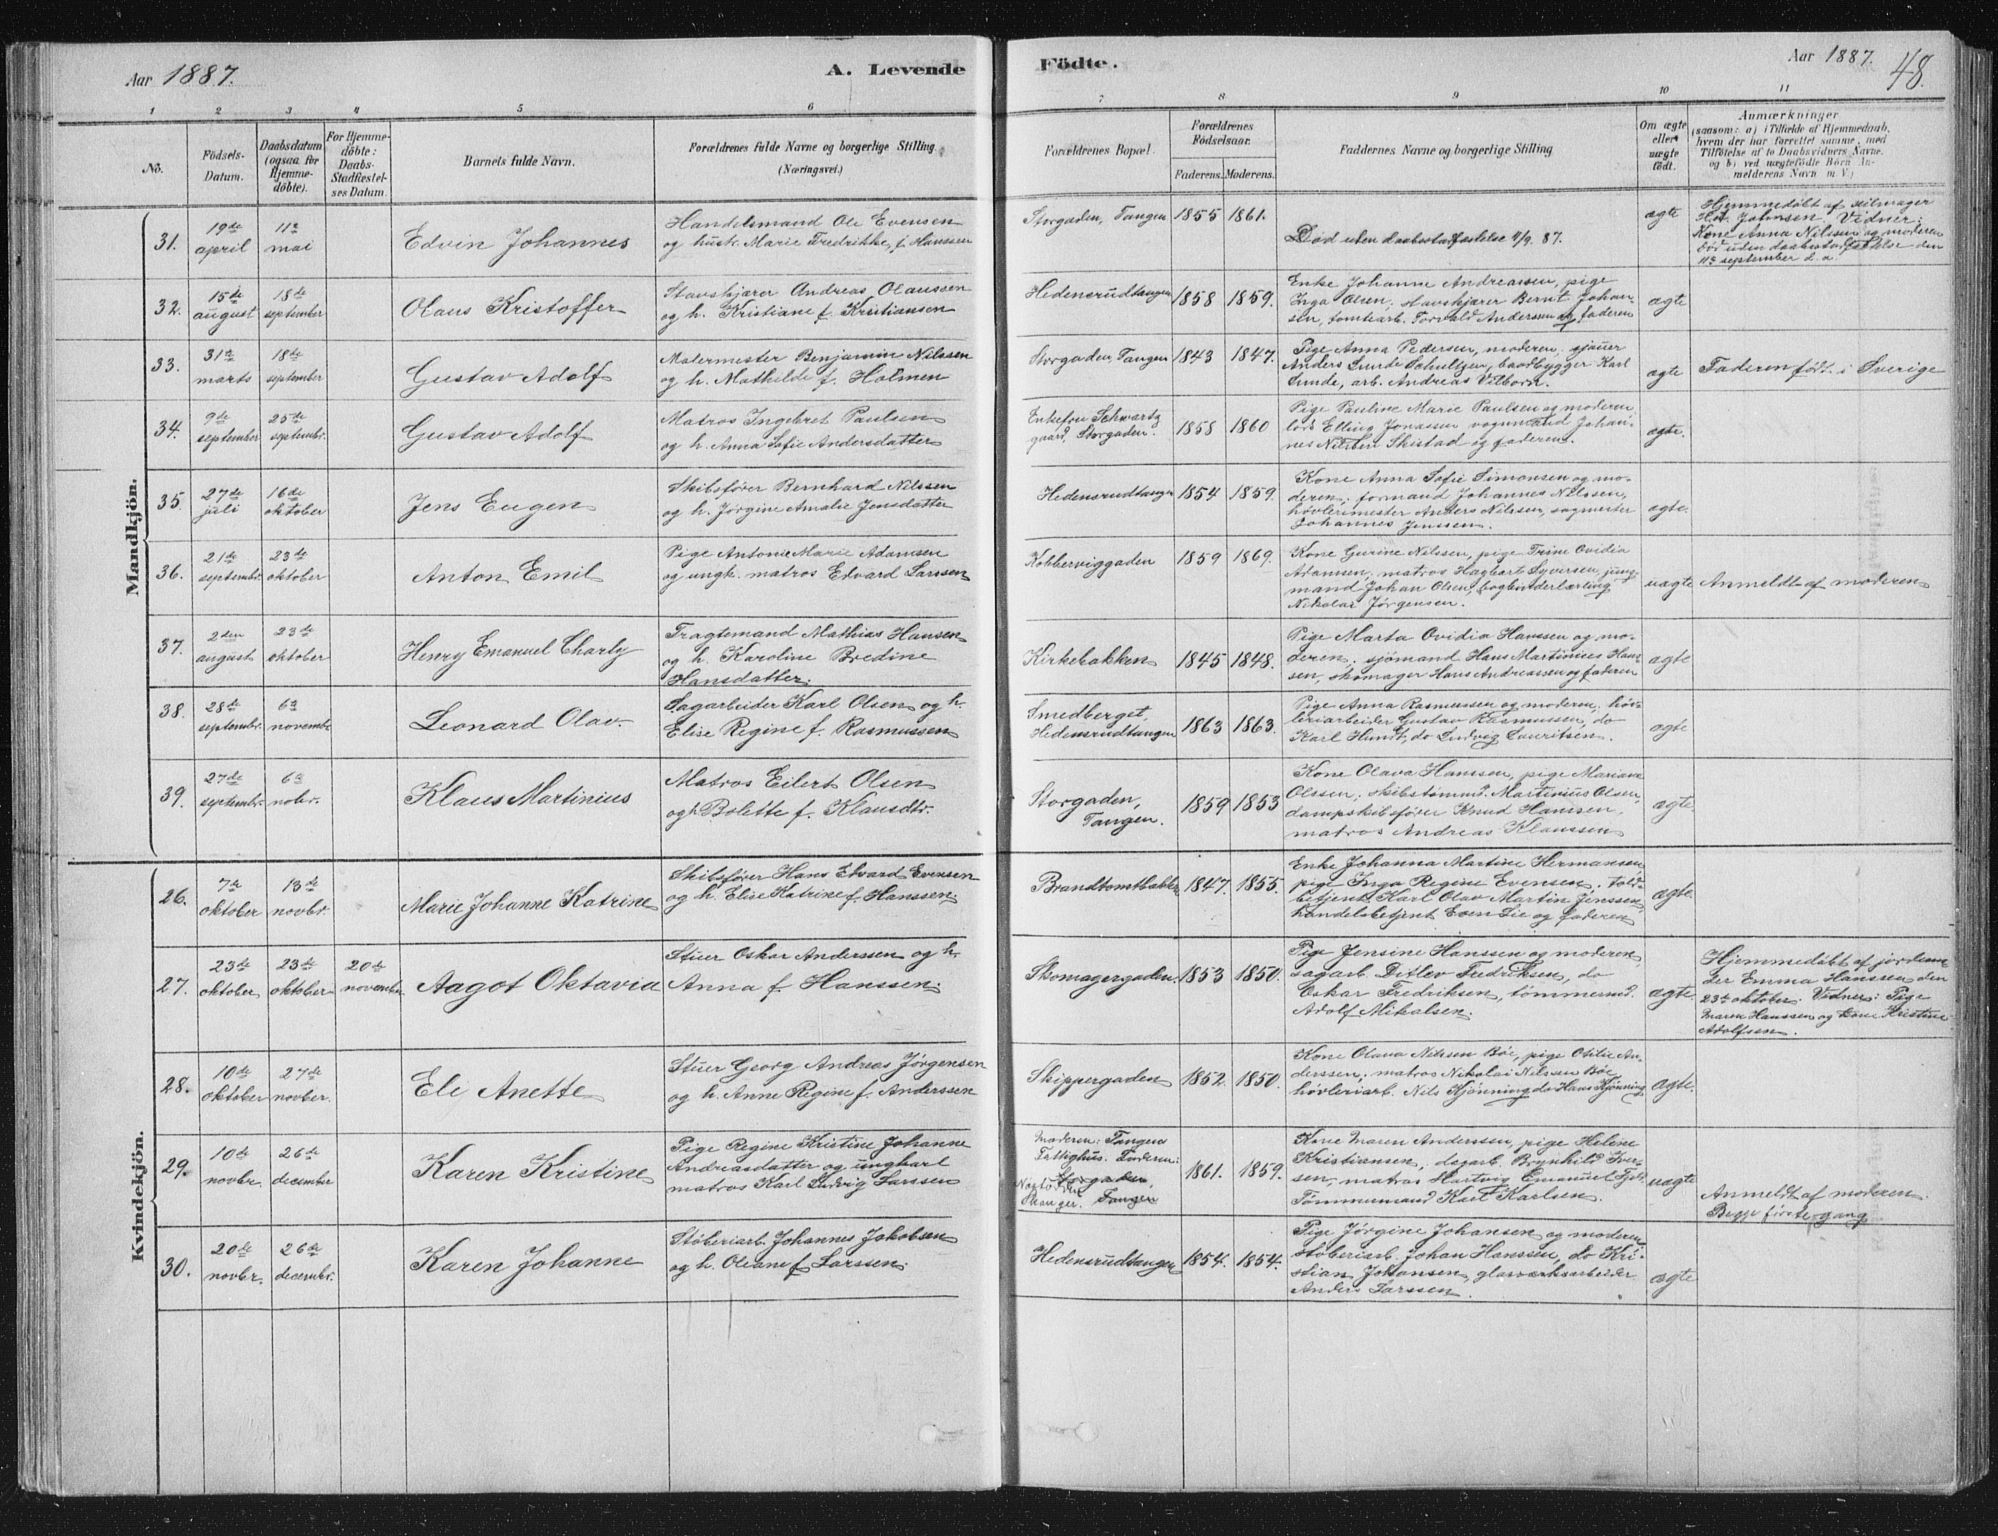 Aar 1887.
A. Levende
Födte.
Aar 1887.
48.
1 2 3 4 5 6 7 8 9 10 11
No.
Födsels-
Datum.
Daabsdatum
(ogsaa for
Hjemme-
döbte).
For Hjemme-
döbte:
Daabs-
Stadfæstel-
ses Datum.
Barnets fulde Navn.
Forældrenes fulde Navne og borgerlige Stilling
(Næringsvei.)
Forældrenes Bopæl.
Forældrenes
Födselsaar.
Faderens. Moderens.
Faddernes Navne og borgerlige Stilling
Om ægte
eller
uægte
födt.
Anmærkninger
(saasom: a) i Tilfælde af Hjemmedaab,
hvem der har forrettet samme, med
Tilföielse af to Daabsvidners Navne,
og b) ved uægtefödte Börn An-
melderens Navn m. V.)
Mandkjön.
31.
19de
april
11te
mai
Edvin Johannes
Handelsmand Ole Evensen
og hustr. Marie Fredrikke, f. Hanssen
Storgaden, Tangen
1855 1861.
Død uden daabsstadfæstelse 11/9. 87.
ægte
Hjemmedøbt af seilmager
Johnsen. Vidner:
Kone Anna Nilssen og moderen
død uden daabsstadfæstelse den
11te september d. a.
32.
15de
august
18de
september
Olaus Kristoffer
Stavskjærer Andreas Olaussen
og h. Kristiane f. Kristiansen
Hedensrudtangen
1858 1859.
Enke Johanne Andreassen, pige
Inga Olsen, stavskjærer Bernt Johan-
sen, tomtearb. Torvald Anderssen og faderen
ægte
33.
31te
marts
18de
september
Gustav Adolf
Malermester Benjamin Nilssen
og h. Mathilde f. Holmen
Storgaden, Tangen
1843 1847.
Pige Anna Pedersen, moderen, sjauer
Anders Lunde Schultzen, baadbygger Karl
Lunde, arb. Andreas Vilborn.
ægte
Faderen født i Sverige
34.
9de
september
25de
septembr.
Gustav Adolf
Matros Ingebret Paulsen
og h. Anna Sofie Andersdatter
Enkefru Schwartz
gaard, Storgaden.
1858 1860
Pige Pauline Marie Paulsen og moderen,
lods Elling Jonassen vognmand Johan-
nes Nilsen Skistad og faderen.
ægte.
35.
27de
juli
16de
oktober
Jens Eugen
Skibsfører Bernhard Nilssen
og h. Jørgine Amalie Jensdatter
Hedensrudtangen
1854 1859.
Kone Anna Sofie Simonsen og mo-
deren, formand Johannes Nilssen,
høvlerimester Anders Nilssen, sagmester
Johannes Jenssen.
ægte.
36.
21de
septembr.
23de
oktober
Anton Emil
Pige Antonie Marie Adamsen
og ungk. matros Edvard Larssen
Kobbervigg​aden
1859 1869.
Kone Gurine Nilssen, pige Trine Ovidia
Adamsen, matros Hagbart Syversen, jung-
mand Johan Olsen, bogbinderlærling
Nikolai Jørgensen.
uægte
Anmeldt af moderen
37.
2den
august
23de
oktober
Henry Emanuel Charly
Fragtemand Mathias Hansen
og h. Karoline Bredine
Hansdatter.
Kirkebakken
1845 1848.
Pige Marta Ovidia Hanssen og mo-
deren, sjömand Hans Martinius Han-
sen, skomager Hans Andreassen og faderen
ægte
38.
28de
septembr.
6te
novembr.
Leonard Olav.
Sagarbeider Karl Olsen og h.
Elise Regine f. Rasmussen
Smedberget,
Hedensrudtangen
1863 1863.
Pige Anna Rasmussen og moderen, høv-
leriarbeider Gustav Rasmussen, do
Karl Hundt, do Ludvig Lauritsen.
ægte
39.
27de
septembr.
6te
nobr.
Klaus Martinius
Matros Eilert Olsen
og h. Bolette f. Klausdtr.
Storgaden,
Tangen.
1859 1853
Kone Olava Hanssen, pige Mariane
Olssen, skibstømmd. Martinius Olsen,
dampskibsfører Knud Hanssen,
matros Andreas Klaussen
ægte
Kvindekjön.
26.
7de
oktober
13de
novbr.
Marie Johanne Katrine
Skibsfører Hans Edvard Evensen
og h. Elise Katrine f. Hanssen
Brandtomtbakken
1847. 1855.
Enke Johanna Martine Hermansen,
pige Inga Regine Evensen, told-
betjent Karl Olav Martin Jenssen,
handelsbetjent Even Lie og faderen
ægte
27.
23de
oktober
23de
oktober
20de
november
Aagot Oktavia
Stuer Oskar Anderssen og h.
Anna f. Hanssen.
Skomagergaden.
1853 1850.
Pige Jensine Hanssen og moderen,
sagarb. Ditlev Fredriksen, do
Oskar Fredriksen, tømmermd.
Adolf Mikalsen.
ægte.
Hjemmedöbt af jordem-
der Emma Hanssen den
23de oktober. Vidner: Pige
Maren Hanssen og kone Kristine
Adolfsen.
28.
10de
oktober
27de
novber.
Ele Anette
Stuer Georg Andreas Jørgensen
og h. Anne Regine f. Anderssen
Skippergaden
1852. 1850.
Kone Olava Nilssen Bøe, pige Otilie An-
derssen, matros Nikolai Nilssen Bøe,
høvleriarb. Nils Kjønning do Hans Kjønning
ægte.
29.
10de
novbr.
26de
december
Karen Kristine
Pige Regine Kristine Johanne
Andreasdatter og ungkarl
matros Karl Ludvig Larssen
Moderen: Tangens
Fattighus. Faderen:
Storgaden,
Tangen
1861. 1859.
Kone Maren Anderssen, pige Helene
Kristiansen, dagarb. Brynhild Iver-
sen, matros Hartvig Emanuel
Tømmermand Karl Karlsen.
uægte
Anmeldt af moderen.
Begge første gang
30.
20de
novbr.
26de
decembr.
Karen Johanne
Støberiarb. Johannes Jakobsen
og h. Oleane f. Larssen.
Hedensrudtangen
1854. 1854.
Pige Jørgine Johansen og moderen,
støberiarb. Johan Hanssen, do Kri-
stian Johansen, glasværksarbeider
Anders Larssen.
ægte